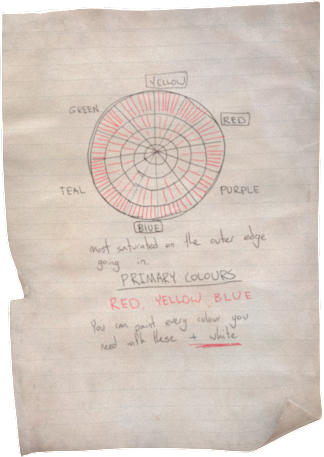 YELLOW
GREEN
RED
TEAL
PURPLE
BLUE
most saturated on the outer edge
going in.
PRIMARY COLOURS
RED, YELLOW, BLUE
You can paint every colour you
need with these + white